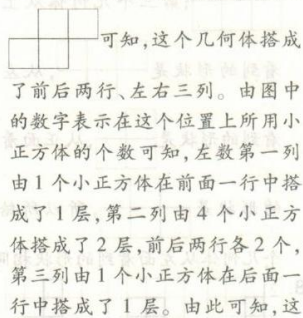 可知,这个几何体搭成
了前后两行、左右三列。由图中
的数字表示在这个位置上所用小
正方体的个数可知,左数第一列
由1个小正方体在前面一行中搭
成了1层,第二列由4个小正方
体搭成了2层,前后两行各2个,
第三列由1个小正方体在后面一
行中搭成了1层。由此可知,这